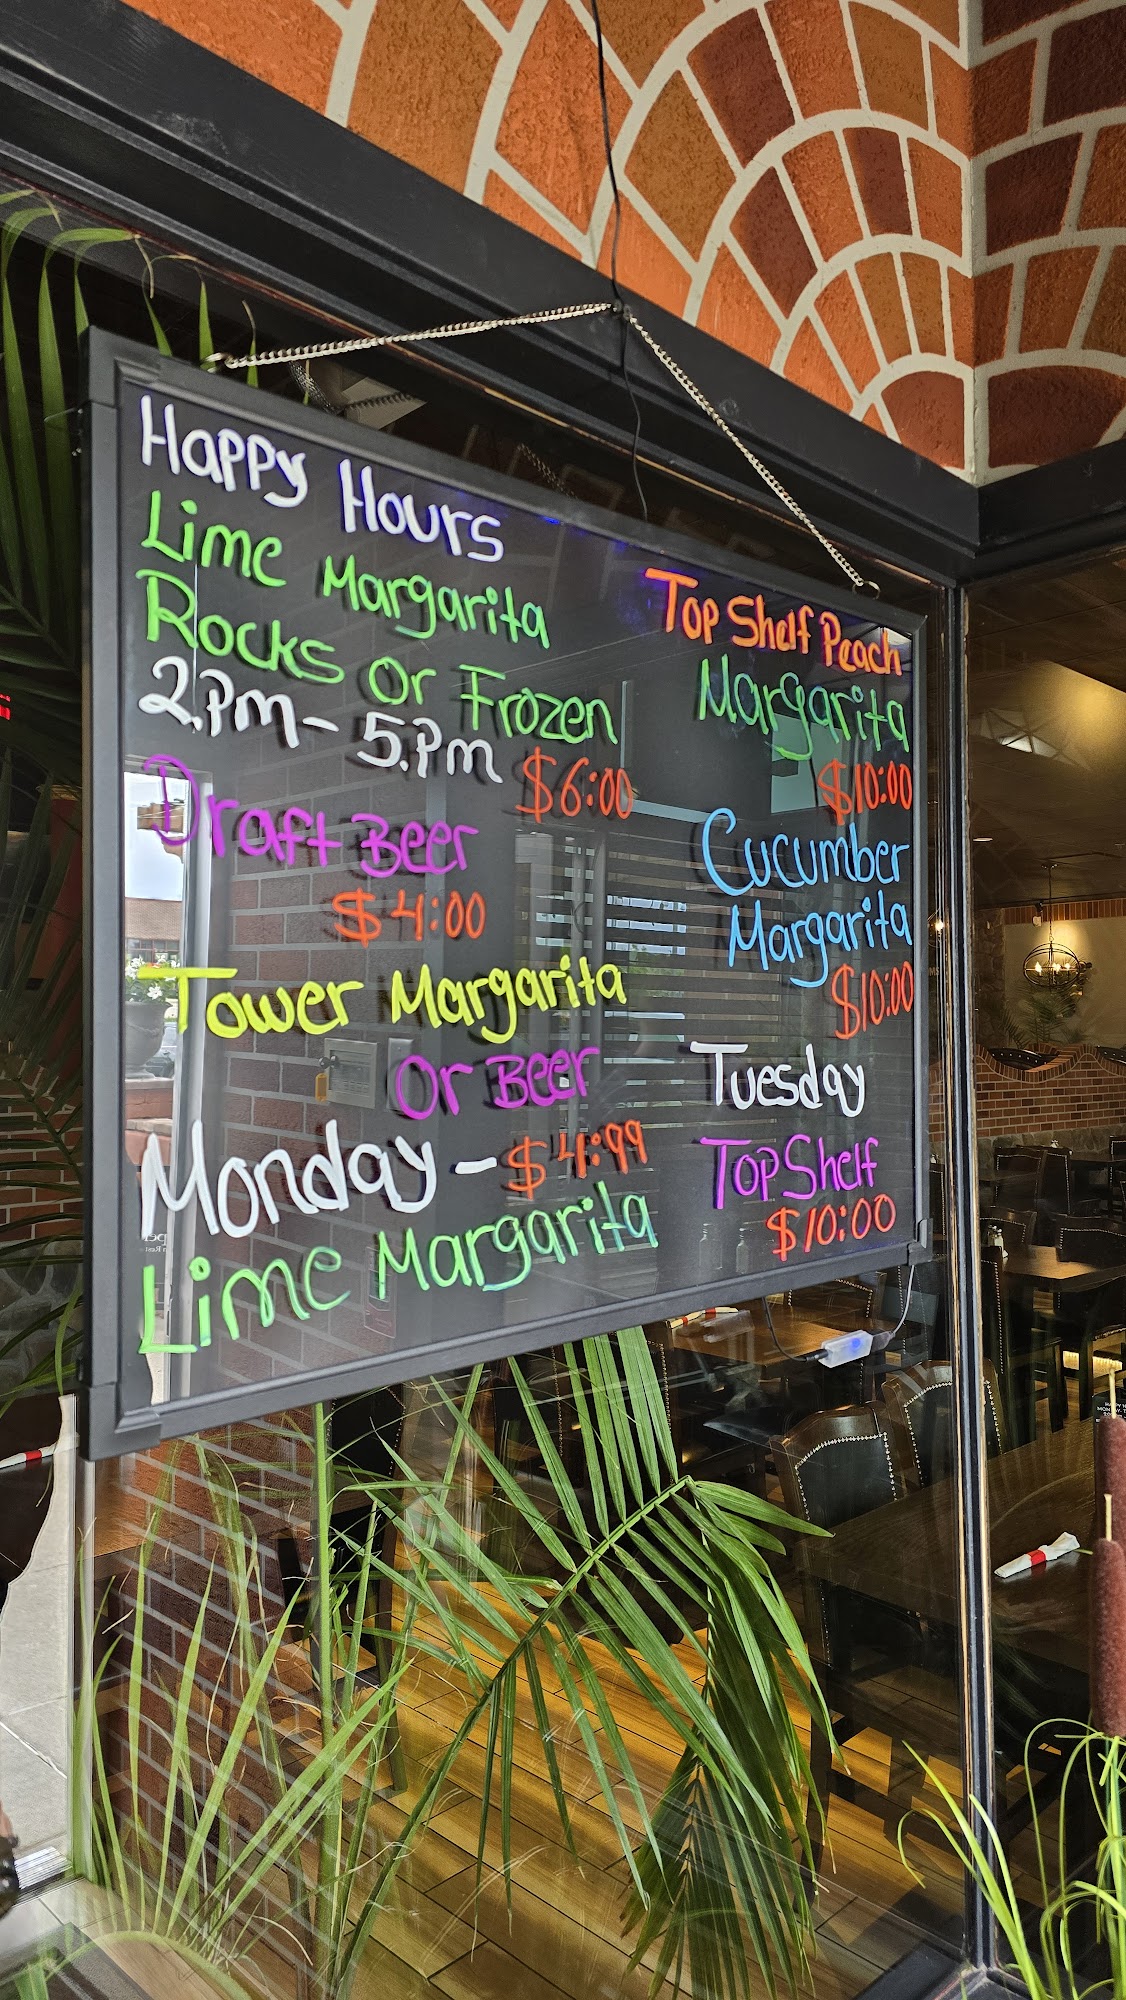 Happy Hours
Lime Margarita
Rocks Or Frozen
2.Pm- 5.Pm
$6:00
Draft Beer
$4:00
Tower Margarita
Or Beer
Monday - $4:99
Lime Margarita
Top Shelf Peach
Margarita
$10:00
Cucumber
Margarita
$10:00
Tuesday
Top Shelf
$10:00